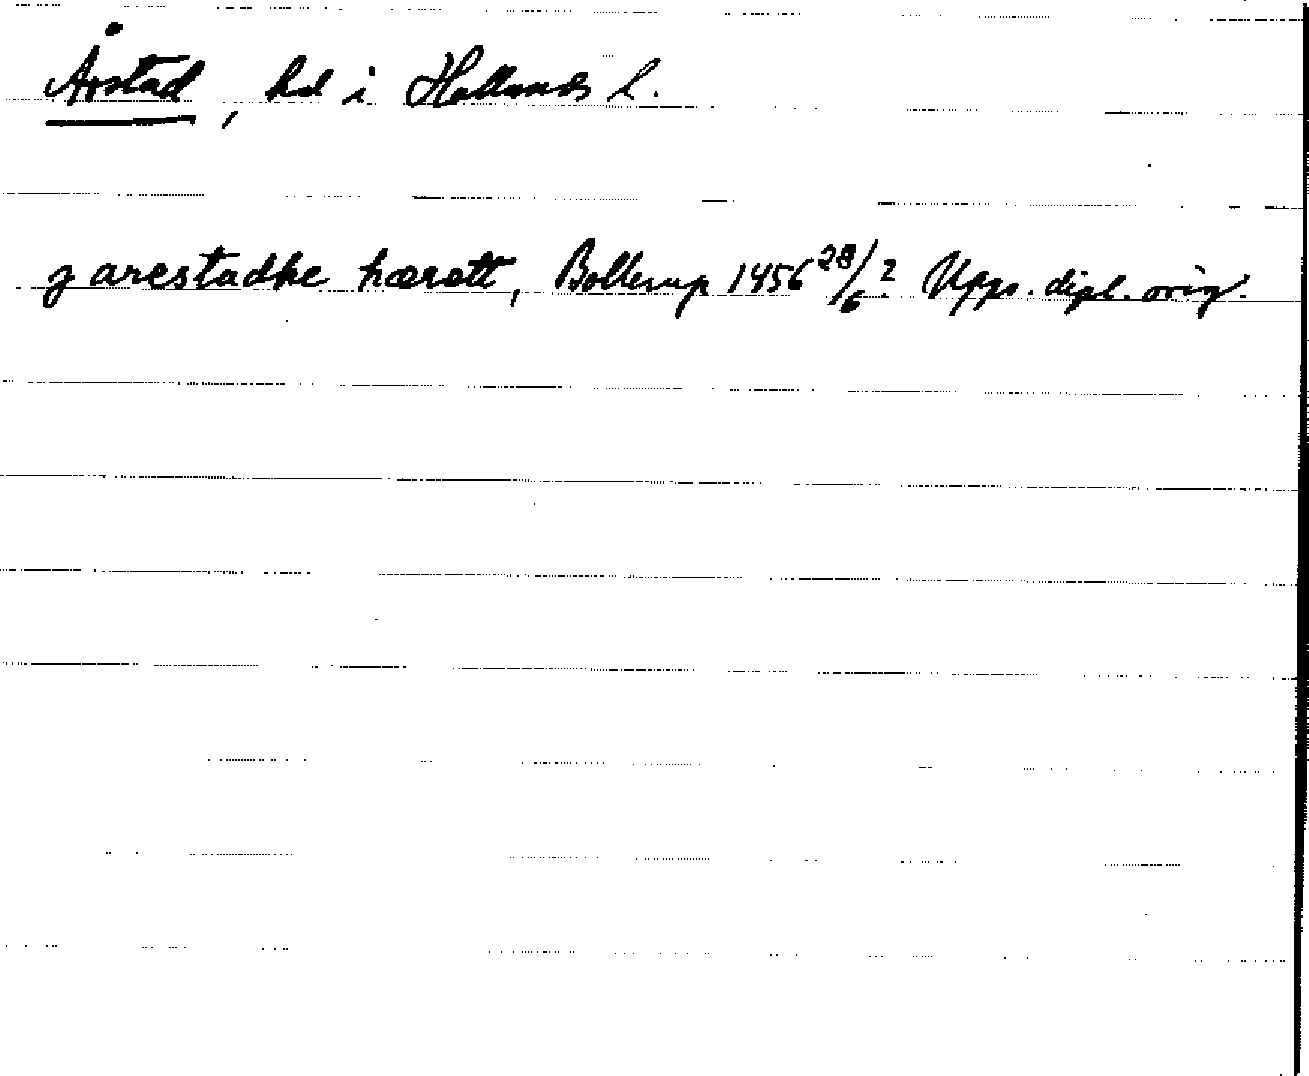 Årstad, hd i Hallands l.
j arestadhe hærett, Bollerup 1456 28/6? Upps. dipl. orig.